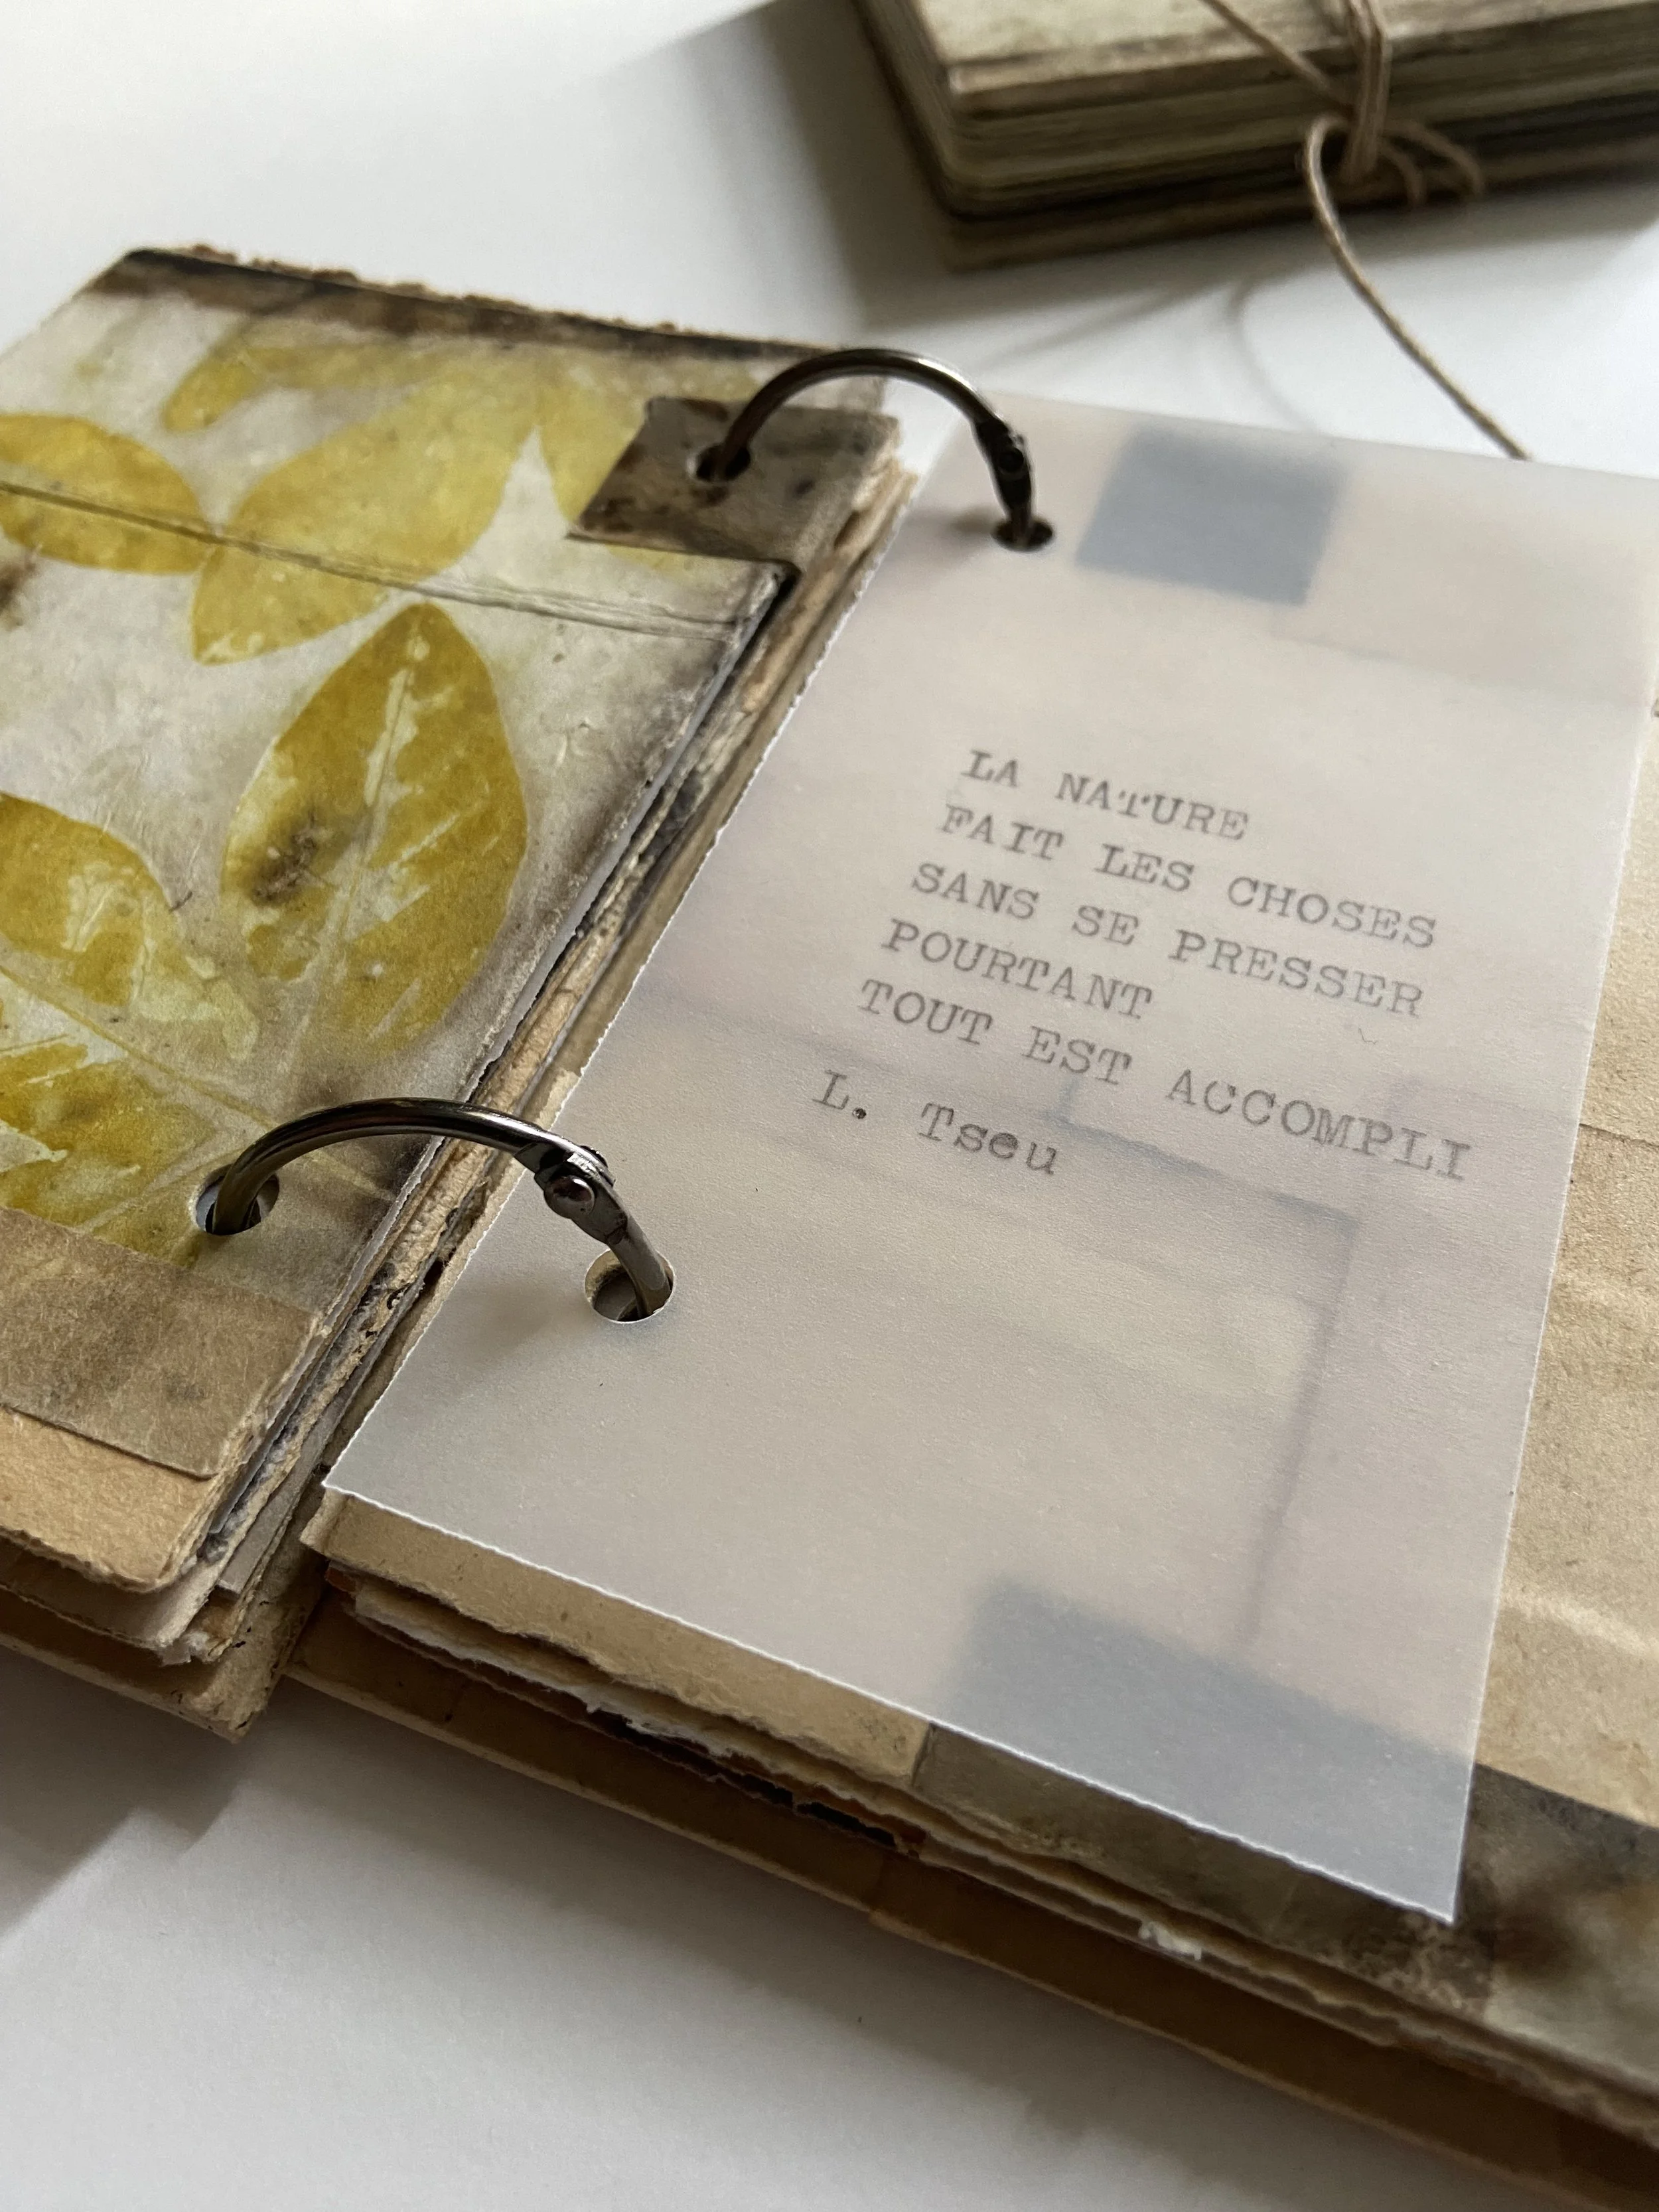 LA NATURE
FAIT LES CHOSES
SANS SE PRESSER
POURTANT
TOUT EST ACCOMPLI
L. Tseu